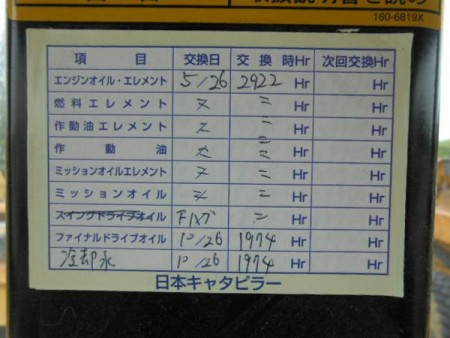 160-6819X
項 目 交換日 交 換 時Hr 次回交換Hr
エンジンオイル・エレメント 5/26 2922 Hr Hr
燃料エレメント 〃 〃 Hr Hr
作動油エレメント 〃 〃 Hr Hr
作 動 油 〃 〃 Hr Hr
ミッションオイルエレメント 〃 〃 Hr Hr
ミッションオイル 〃 〃 Hr Hr
スイングドライブオイル 〃 Hr Hr
ファイナルドライブオイル 10/26 1974 Hr Hr
冷却水 10/26 1974 Hr Hr
日本キャタピラー